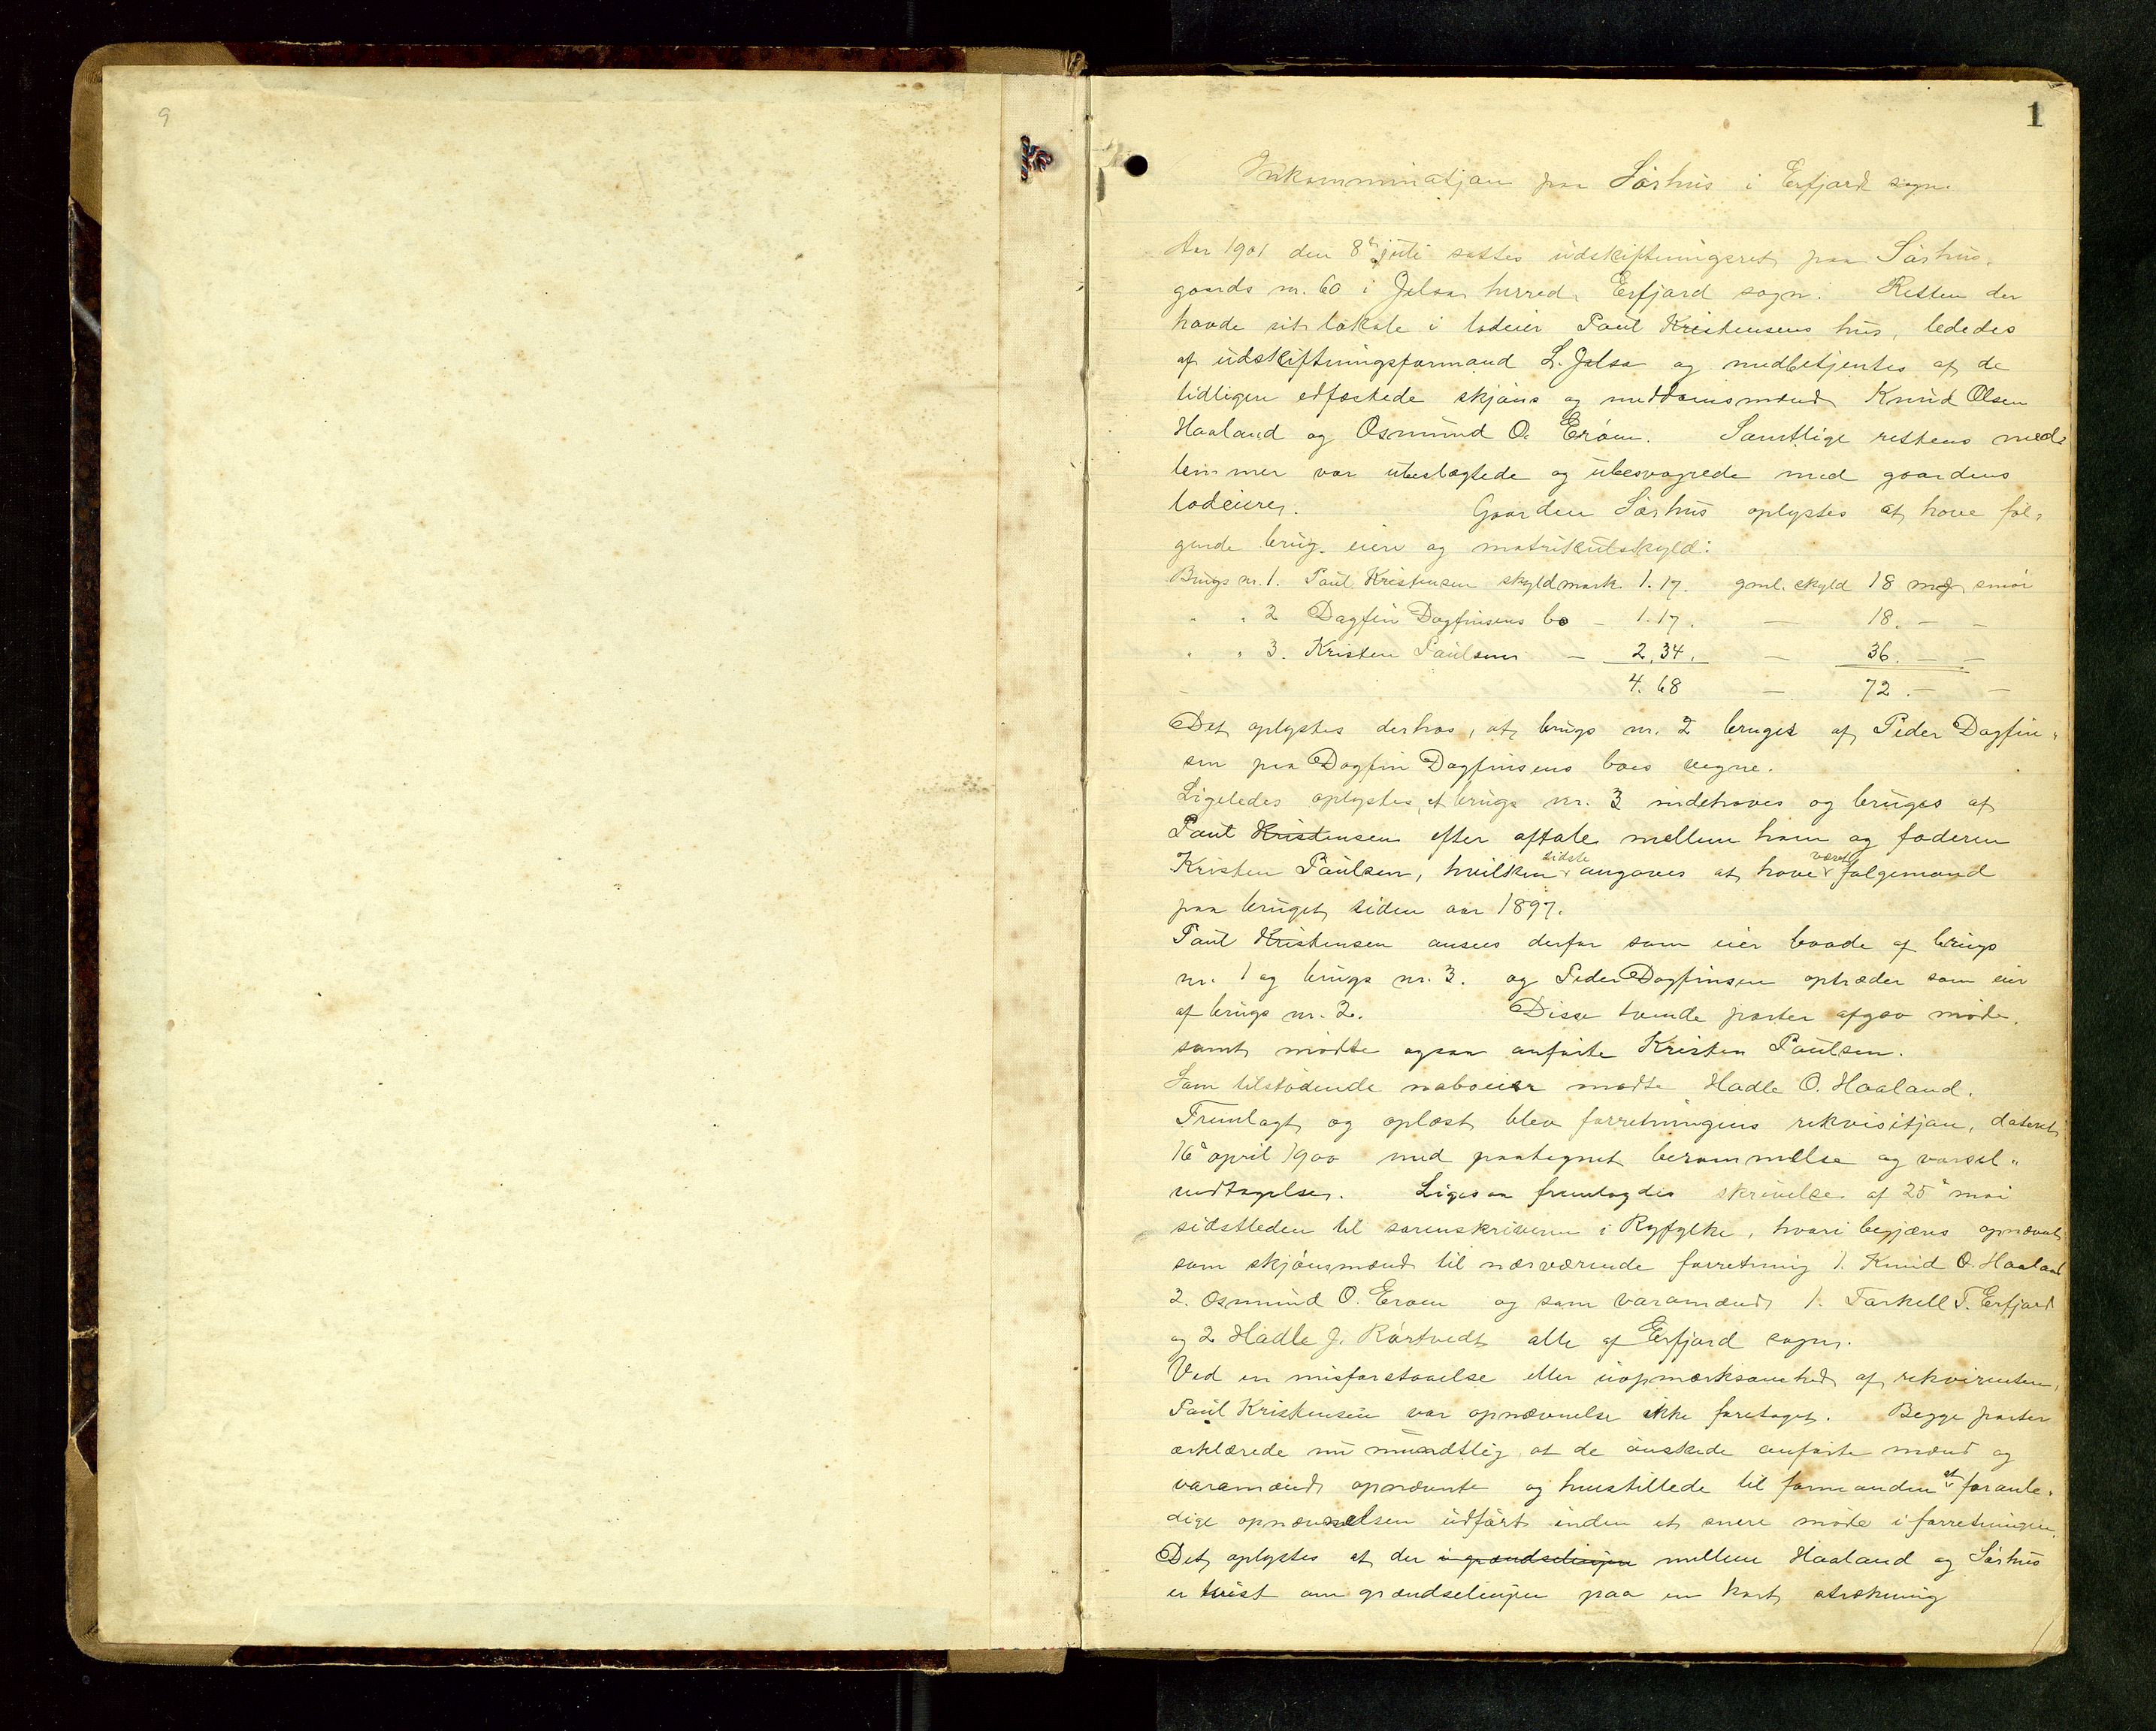 9
1
Inkamminatjan paa Sørhus i Erfjord sogn.
Aar 1901 den 8de juli sattes udskiftningsret paa Sørhus,
gaards nr. 60 i Jelsa herred, Erfjord sogn. Retten der
havde sit lokale i lodeier Paul Kristensens hus, lededes
af udskiftningsformand L. Jelsa og medbetjentes af de
tidligere edfæstede skjøns og meddomsmænd Knud Olsen
Haaland og Osmund O. Erøen. Samtlige rettens med-
lemmer var ubeslægtede og ubesvogrede med gaardens
lodeiere. Gaarden Sørhus oplystes at have føl-
gende brug, eiere og matrikulskyld:
Brugs nr. 1. Paul Kristensen skyldmark 1.17. gml. skyld 18 mg smør
" " 2 Dagfin Dagfinsens bo - 1.17. — 18. - -
" " 3. Kristen Paulsen - 2.34. — 36. - -
4.68 — 72. - -
Det oplystes derhos, at brugs nr. 2 bruges af Peder Dagfin-
sen paa Dagfin Dagfinsens boes vegne.
Ligeledes oplystes, at brugs nr. 3 indehaves og bruges af
Paul Kristensen efter aftale mellem ham og faderen
Kristen Paulsen, hvilken sidste angaves at have været følgemand
paa bruget siden aar 1897.
Paul Kristensen ansees derfor som eier baade af brugs
nr. 1 og brugs nr. 3. og Peder Dagfinsen optræder som eier
af brugs nr. 2. Disse tvende parter afgav møde,
samt mødte ogsaa anførte Kristen Paulsen.
Som tilstødende naboeier mødte Hadle O. Haaland.
Fremlagt og oplæst blev forretningens rekvisitjon, dateret
16de april 1900 med paategnet berammelse og varsel-
vedtagelse. Ligesaa fremlagdes skrivelse af 25de mai
sidstleden til sorenskriveren i Ryfylke, hvori begjæres opnævnt
som skjønsmænd til nærværende forretning 1. Knud O. Haaland
2. Osmund O. Erøen og som varamænd 1. Tarkell T. Erfjord
og 2 Hadle J. Rørtvedt alle af Erfjord sogn.
Ved en misforstaaelse eller uopmærksomhed af rekvirenten,
Paul Kristensen var opnævnelse ikke foretaget. Begge parter
erklærede nu mundtlig at de ønskede anførte mænd og
varamænd opnævnte og henstillede til formanden at foranle-
dige opnævnelsen udført inden et senere møde i forretningen.
Det oplystes at der i grændselinjen mellem Haaland og Sørhus
er tvist om grændselinjen paa en kort strækning